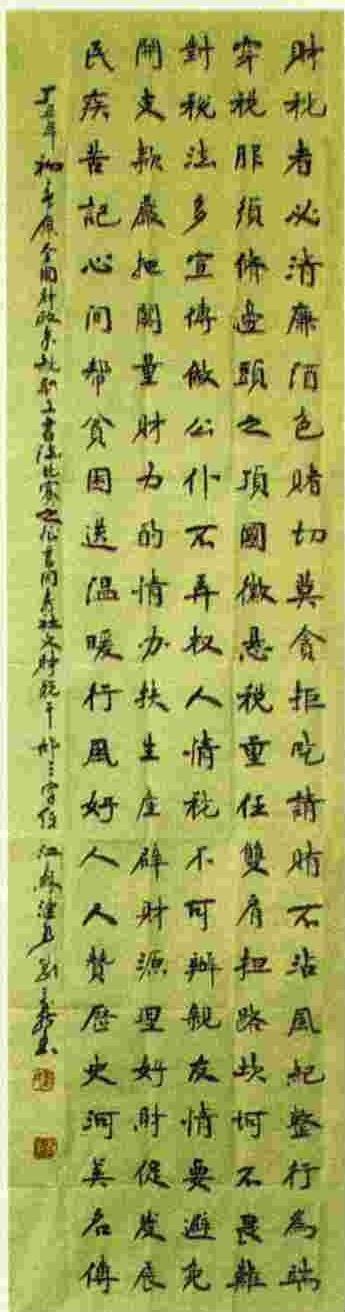 財税者必清廉酒色賭切莫貪拒吃請賄不沾風紀整行為端
穿税服須脩邊頭之頂國徽悬税重任雙肩担路坎坷不畏難
對税法多宣傳做公仆不弄权人情税不可辦親友情要避免
開支款嚴把關量財力的情办扶生産辟財源理好財促发展
民疾苦記心间帮貧困送温暖行風好人人赞歷史河美名傳
丁丑年初春應全国財政系税職工書法比賽之